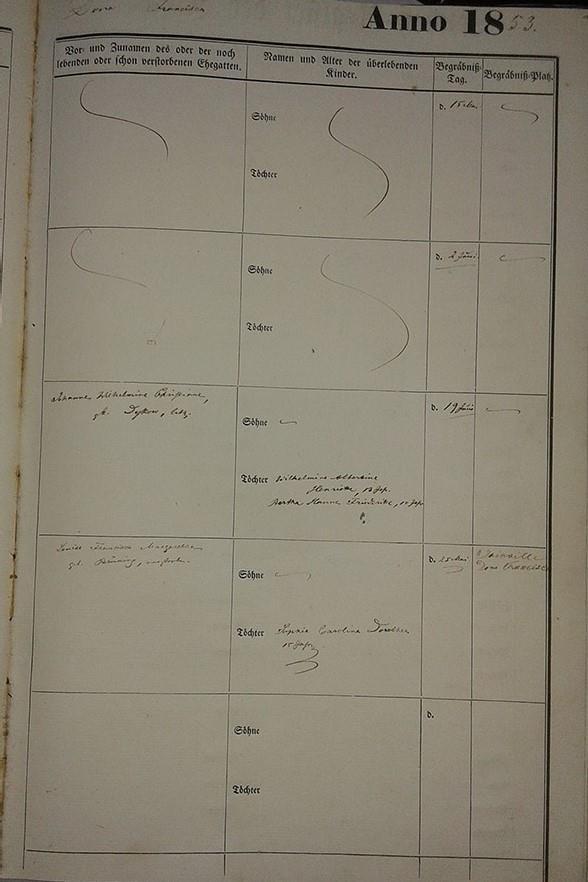 Dona Francisca
Anno 1853.
Vor- und Zunamen des oder der noch
lebenden oder schon verstorbenen Ehegatten.
Namen und Alter der überlebenden
Kinder.
Begräbniß-
Tag.
Begräbniß-Platz.
Söhne
Töchter
d. 15
Söhne
Töchter
d. 2 Juni
Johanne Wilhelmine
geb.
Söhne
Töchter Wilhelmine Albertine
Henriette, 13
Bertha Hanne Friederike,
d. 19
Louise Francisca Margaretha
geb.
Söhne
Töchter Sophie Caroline Dorothea
15
d. 25 Mai
Joinville
Dona Francisca
Söhne
Töchter
d.